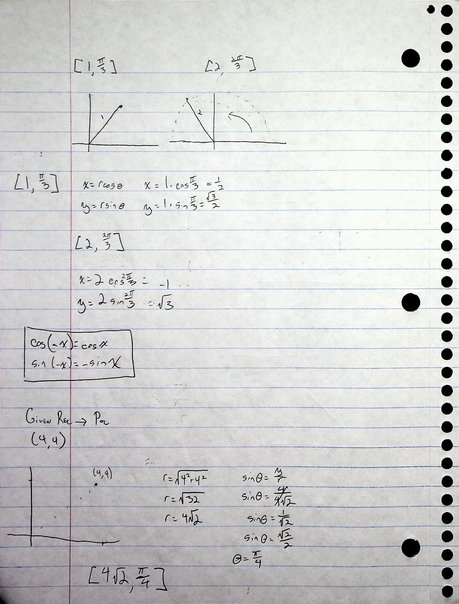 [1, π/3] [2, 2π/3]
1 2
[1, π/3] x = r cos θ x = 1 · cos π/3 = 1/2
y = r sin θ y = 1 · sin π/3 = √3/2
[2, 2π/3]
x = 2 cos 2π/3 = -1
y = 2 sin 2π/3 = √3
cos(-x) = cos x
sin(-x) = -sin x
Given Rec → Pol
(4,4)
(4,4)
r = √4²+4² sin θ = y/r
r = √32 sin θ = 4/4√2
r = 4√2 sin θ = 1/√2
sin θ = √2/2
θ = π/4
[4√2, π/4]